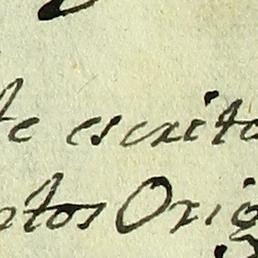 te escrito
otos Orig